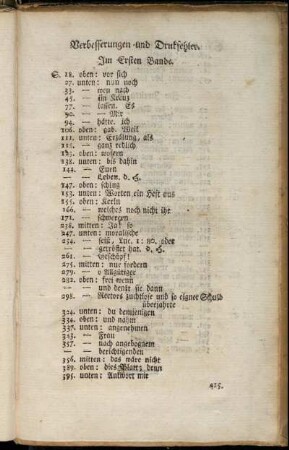 Verbesserungen und Drukfehler.
Im Ersten Bande.
S. 18. oben: vor sich
27. unten: nun noch
33. — wen nach
45. — ein Kreuz
77. — lassen. Es
90. — Mir
94. — hätte. ich
106. oben: gab. Weil
111. unten: Erzälung, als
115. — ganz redlich
123. oben: wosern
138. unten: bis dahin
144. — Euen
— — Leben. d. H.
147. oben: schling
153. unten: Worten ein Heft aus
155. oben: Kerln
166. — welches noch nicht ihr
171. — schwergen
236. mitten: Jah so
247. unten: moralische
254. — selu, Luc. 1: 80. oder
— — getröstet hat. d. H.
261. — Geschöpf!
275. mitten: nur fordern
279. — o Allgütiger
282. oben: frei wenn
— — und denkt sie dann
298. — Rectors zuchtlose und so eigner Schuld
überjahrte
304. unten: du demjenigen
334. oben: und nahm
337. unten: angenehmen
343. — Frau
357. — nach angebognem
— — berichtigenden
356. mitten: das wäre nicht
389. oben: dies Blatt; denn
395. unten: Antwort mir
425.